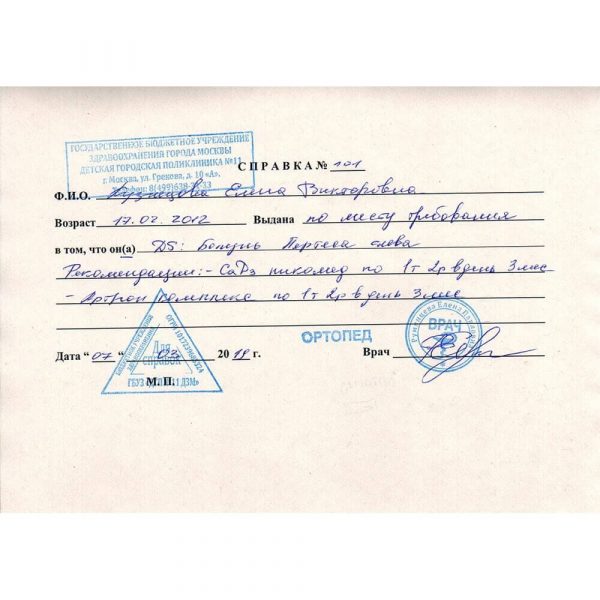 ГОСУДАРСТВЕННОЕ БЮДЖЕТНОЕ УЧРЕЖДЕНИЕ
ЗДРАВООХРАНЕНИЯ ГОРОДА МОСКВЫ
ДЕТСКАЯ ГОРОДСКАЯ ПОЛИКЛИНИКА №11
г. Москва, ул. Грекова, д. 10 «А».
Телефон: 8(499)
СПРАВКА № 101
Ф.И.О. Кузнецова Елена Викторовна
Возраст 17.02.2012 Выдана по месту требования
в том, что он(а) DS: Болезнь Пертеса слева
Рекомендации: - СаДз никомед по 1т 2р в день 3 мес
- Артрон комплекс по 1т 2р в день 3 мес
ОРТОПЕД
ВРАЧ
Дата "07" 03 20 г. Врач
Для справок
М. П.